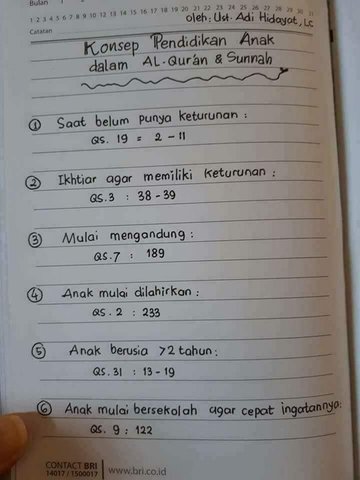 Bulan
1 2 3 4 5 6 7 8 9 10 11 12 13 14 15 16 17 18 19 20 21 22 23 24 25 26 27 28 29 30 31
Catatan
oleh: Ust. Adi Hidayat, Lc
Konsep Pendidikan Anak
dalam AL-Qur'an & Sunnah
① Saat belum punya keturunan :
QS. 19 = 2 - 11
② Ikhtiar agar memiliki keturunan :
QS.3 : 38 - 39
③ Mulai mengandung :
QS.7 : 189
④ Anak mulai dilahirkan :
QS. 2 : 233
⑤ Anak berusia >2 tahun :
QS. 31 : 13 - 19
⑥ Anak mulai bersekolah agar cepat ingatannya:
QS. 9 : 122
CONTACT BRI
14017 / 1500017
www.bri.co.id